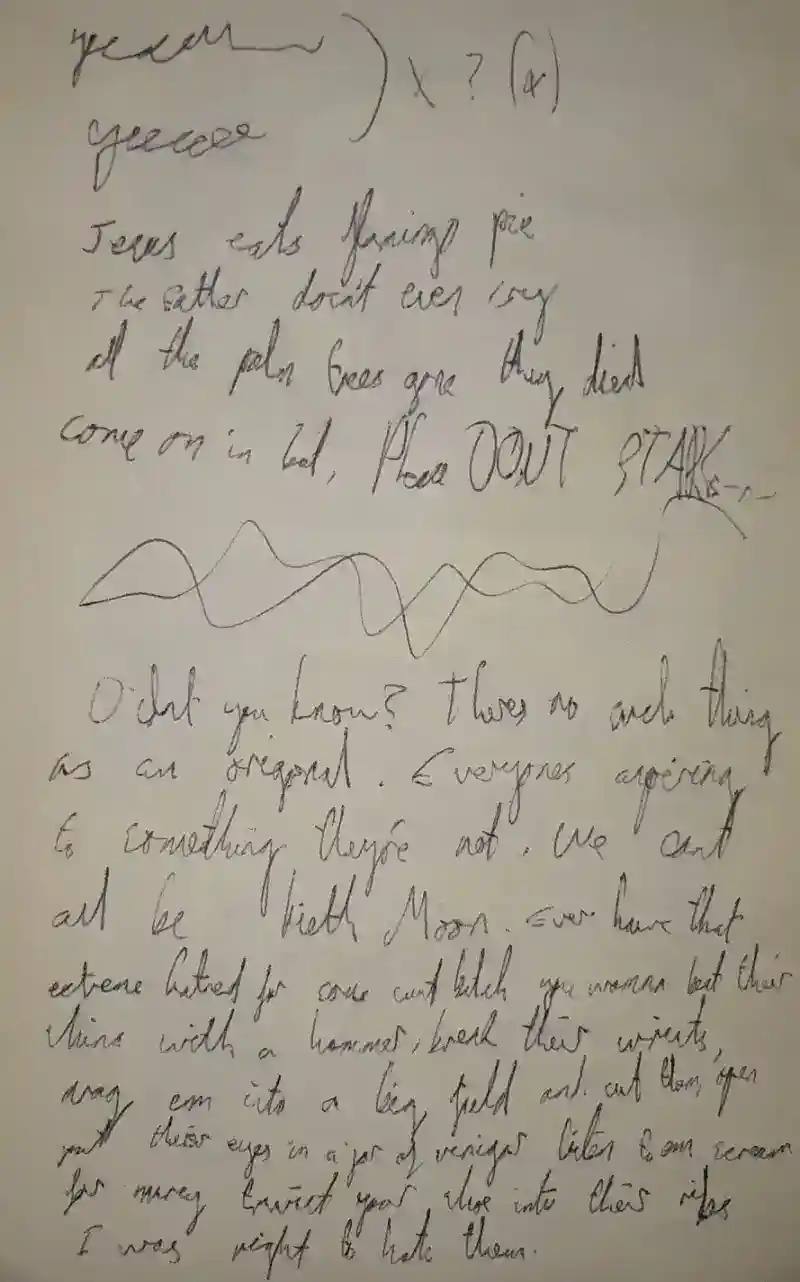 yeeaah
yeeeeee ) x ? (4)
Jesus eats flamingo pie
The Father doesn't even cry
all the palm trees gone they died
come on in bed, Please DON'T STARE
Didnt you know? Theres no such thing
as an origonal. Everyones aspiring
to something they're not. We cant
all be Kieth Moon. Ever have that
extreme hatred for some cunt bitch you wanna beat their
shins with a hammer, break their wrists,
drag em into a big field and cut them open
put their eyes in a jar of vinigar listen to em scream
for mercy twist your shoe into their ribs
I was right to hate them.